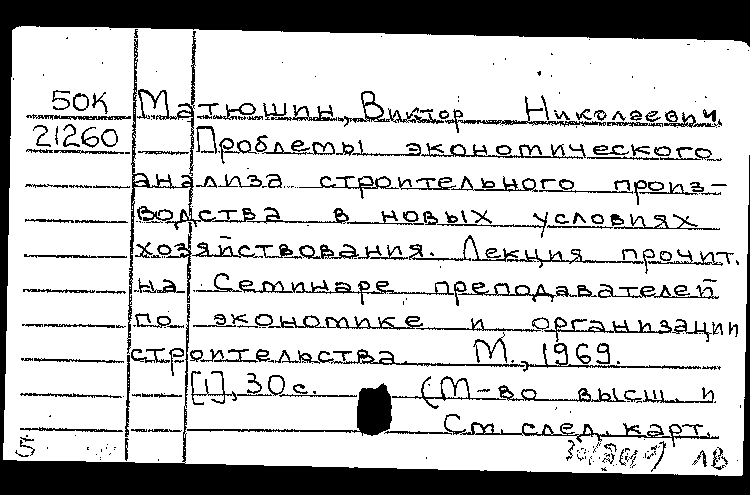 50К Матюшин, Виктор Николаевич.
21260 Проблемы экономического
анализа строительного произ-
водства в новых условиях
хозяйствования. Лекция прочит.
на Семинаре преподавателей
по экономике и организации
строительства. М., 1969.
[1], 30 с. (М-во высш. и
См. след. карт.
5 ЛВ